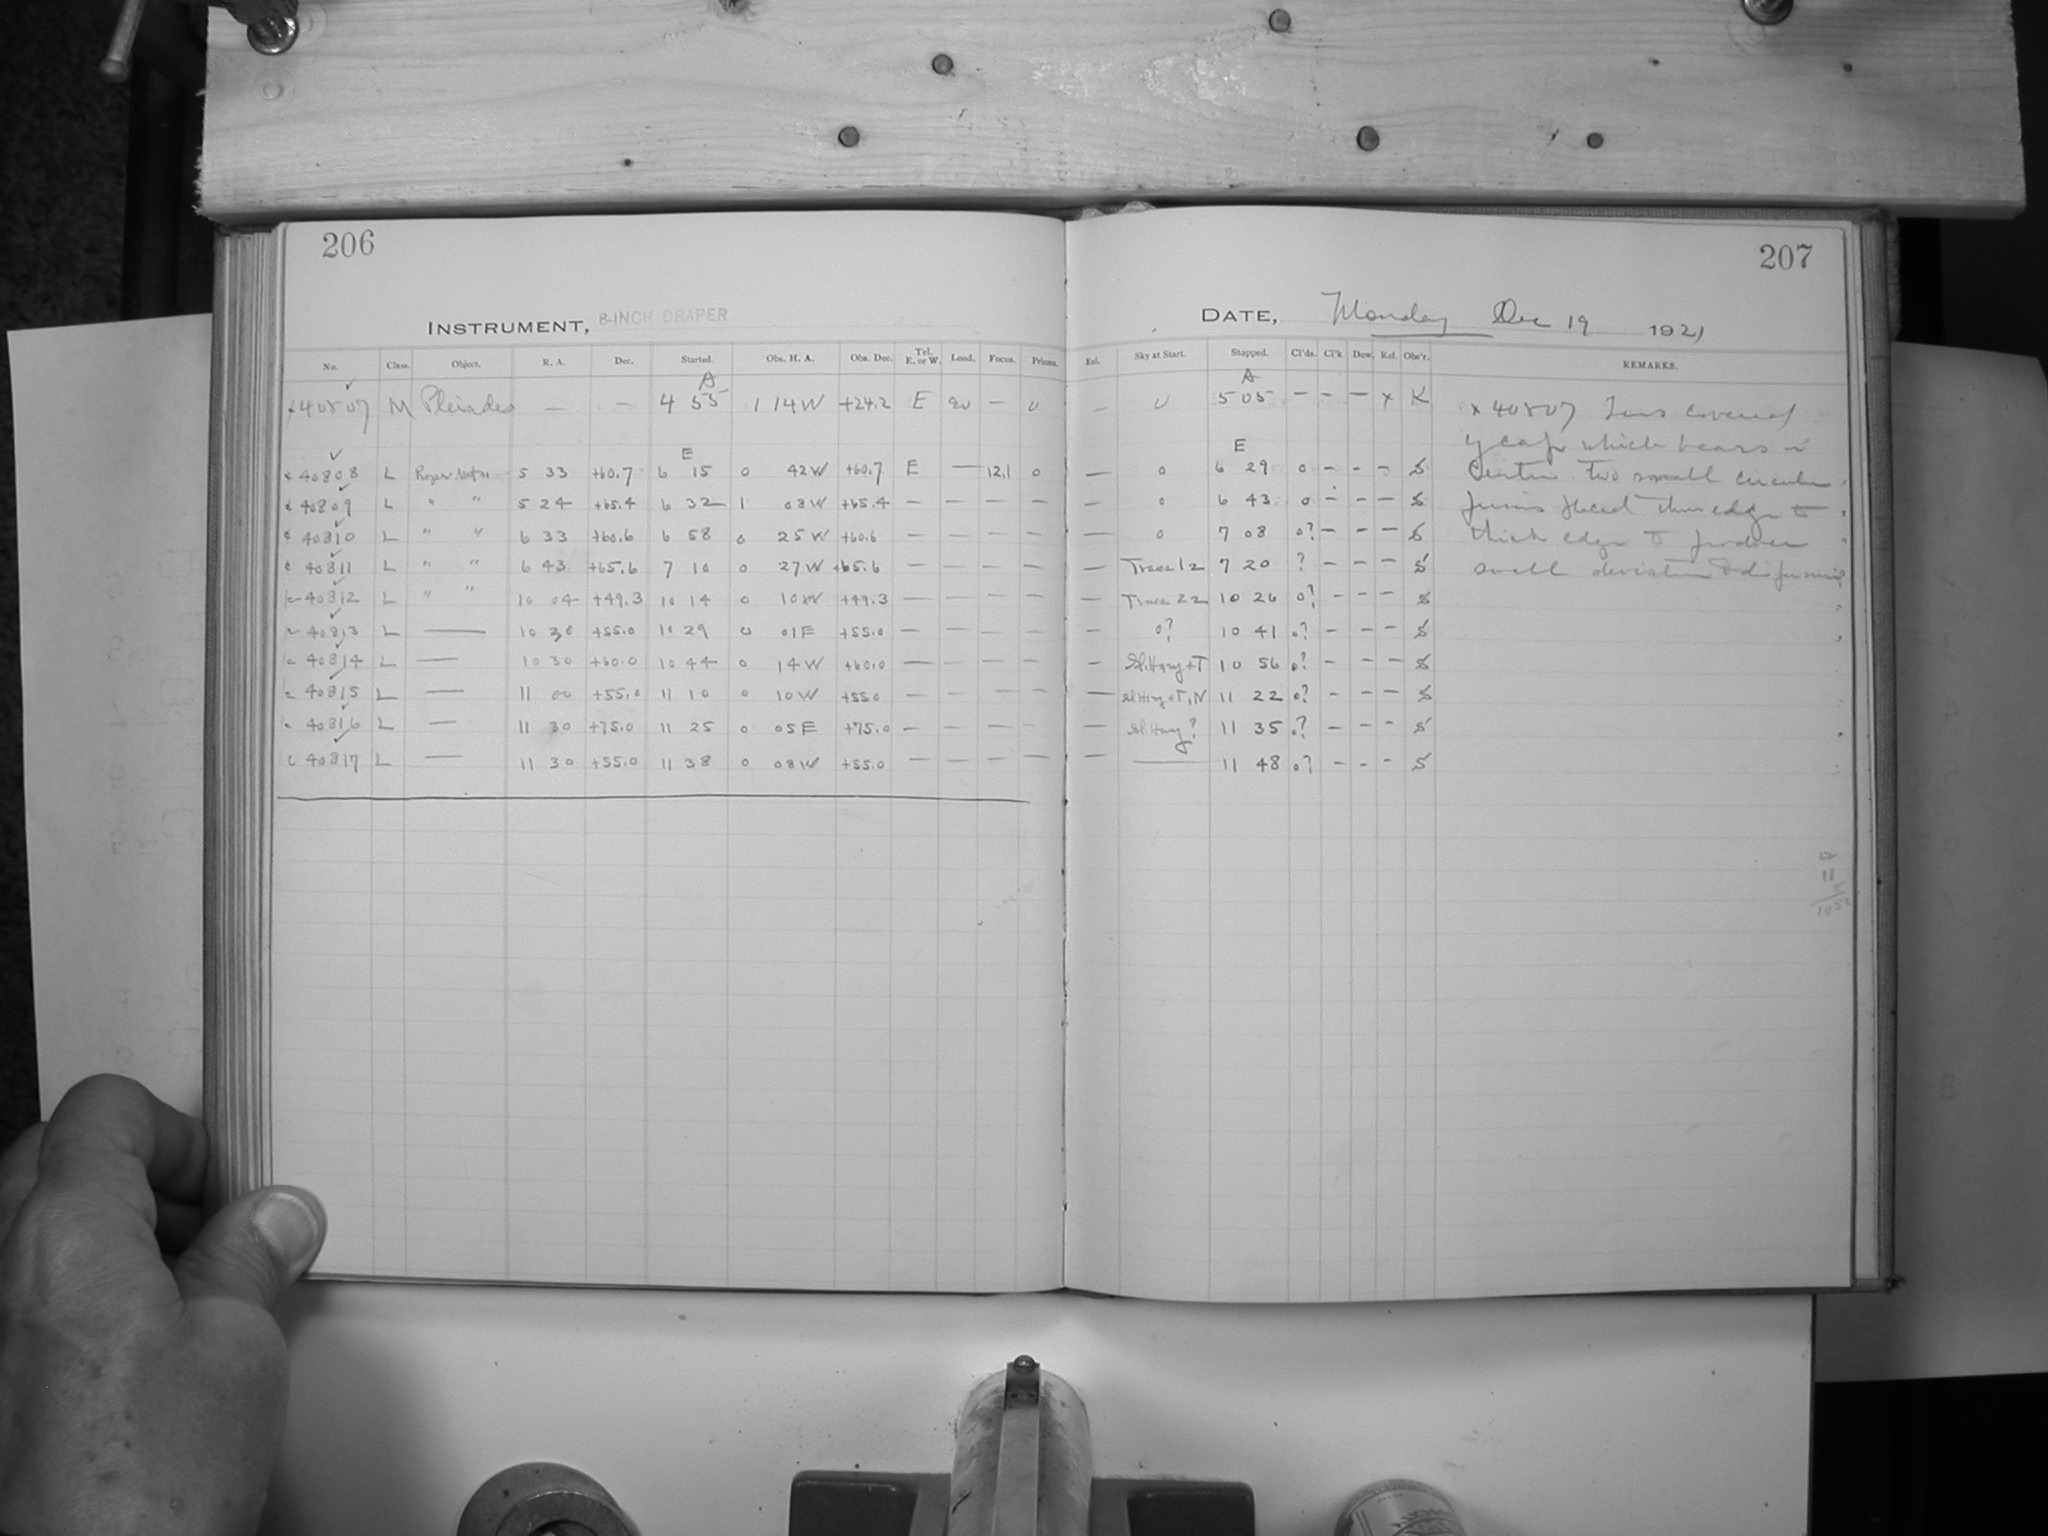 206
207
INSTRUMENT, 8-INCH DRAPER
DATE, Monday Dec 19 1921
No. Class. Object. R. A. Dec. Started. Obs. H. A. Obs. Dec. Tel. E. or W. Load. Focus. Prisms. Enl. Sky at Start. Stopped. Cl'ds. Cl'k Dew. Ref. Obs'r. REMARKS.
A A
x 40807 M Pleiades — — 4 55 1 14W +24.2 E — 0 — 0 5 05 — — — x K x 40807 Lens covered
E E
by cap which bears in
40808 L 5 33 +60.7 6 15 0 42W +60.7 E — 12.1 0 — 0 6 29 0 — — — S center two small circular
40809 L " " 5 24 +65.4 6 32 1 08W +65.4 — — — — — 0 6 43 0 — — — S prisms placed thin edge to
40810 L " " 6 33 +60.6 6 58 0 25W +60.6 — — — — — 0 7 08 0? — — — S thick edge to produce
40811 L " " 6 43 +65.6 7 10 0 27W +65.6 — — — — — Traces 12 7 20 ? — — — S small deviation &
40812 L " " 10 04 +49.3 10 14 0 10W +49.3 — — — — — Traces 22 10 26 0? — — — S
40813 L — 10 30 +55.0 10 29 0 01E +55.0 — — — — — 0? 10 41 0? — — — S
40814 L — 10 30 +60.0 10 44 0 14W +60.0 — — — — — Sl. Hazy + T 10 56 0? — — — S
40815 L — 11 00 +55.0 11 10 0 10W +55.0 — — — — — Sl Hazy + T, N 11 22 0? — — — S
40816 L — 11 30 +75.0 11 25 0 05E +75.0 — — — — — Sl. Hazy? 11 35 0? — — — S
40817 L — 11 30 +55.0 11 38 0 08W +55.0 — — — — — — 11 48 0? — — — S